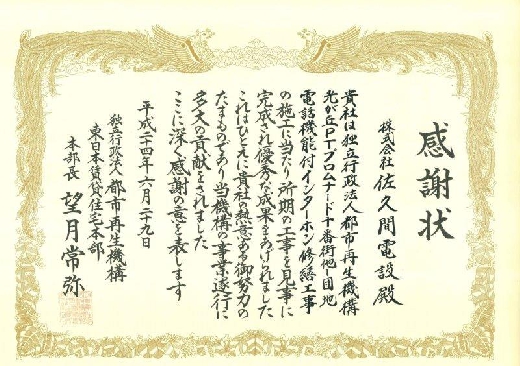 感謝状
株式会社 佐久間電設殿
貴社は独立行政法人都市再生機構
光が丘PTプロムナード十番街他1団地
電話機能付インターホン修繕工事
の施工に当たり所期の工事を見事に
完成され優秀な成果をあげられました
これはひとえに貴社の熱意ある御努力の
たまものであり当機構の事業遂行に
多大の貢献をされました
ここに深く感謝の意を表します
平成二十四年六月二十九日
独立行政法人 都市再生機構
東日本賃貸住宅本部
本部長 望月常弥